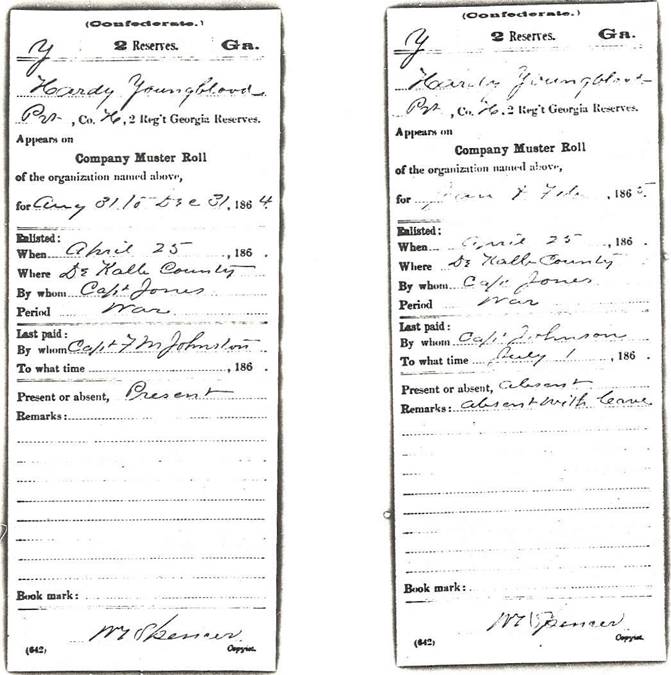 (Confederate.)
Y 2 Reserves. Ga.
Hardy Youngblood
Pvt , Co. H, 2 Reg't Georgia Reserves.
Appears on
Company Muster Roll
of the organization named above,
for Aug 31 to Dec 31, 1864.
Enlisted:
When April 25 , 186 .
Where De Kalb County
By whom Capt Jones
Period War
Last paid:
By whom Capt F M Johnston
To what time , 186 .
Present or absent, Present
Remarks:
Book mark:
W Spencer
(642) Copyist.
(Confederate.)
Y 2 Reserves. Ga.
Hardy Youngblood
Pvt , Co. H, 2 Reg't Georgia Reserves.
Appears on
Company Muster Roll
of the organization named above,
for Jan & Feb , 1865.
Enlisted:
When April 25 , 186 .
Where De Kalb County
By whom Capt Jones
Period War
Last paid:
By whom Capt Johnson
To what time July 1 , 186 .
Present or absent, Absent
Remarks: Absent with leave
Book mark:
W Spencer
(642) Copyist.